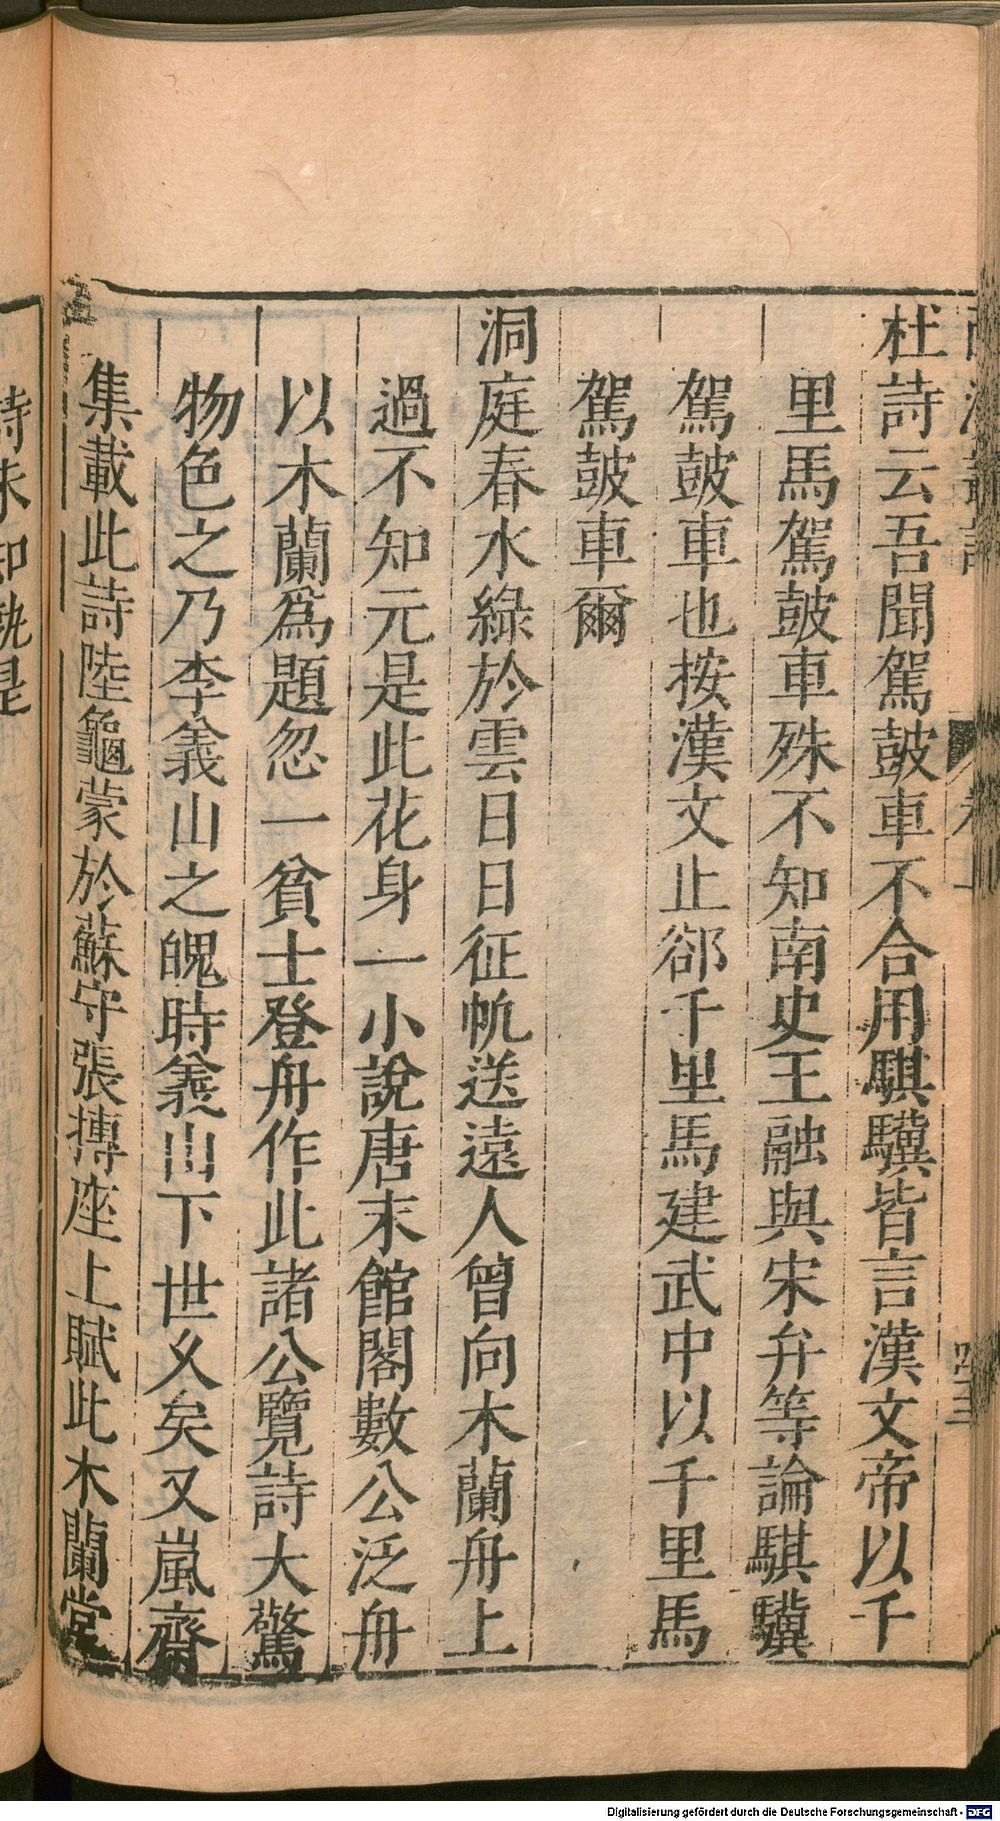 杜詩云吾聞駕皷車不合用騏驥皆言漢文帝以千
里馬駕皷車殊不知南史王融與宋弁等論騏驥
駕皷車也按漢文止郤千里馬建武中以千里馬
駕皷車爾
洞庭春水綠於雲日日征帆送遠人曾向木蘭舟上
過不知元是此花身一小說唐末館閣數公泛舟
以木蘭爲題忽一貧士登舟作此諸公覽詩大驚
物色之乃李義山之魄時義山下世久矣又嵐齋
集載此詩陸龜蒙於蘇守張摶座上賦此木蘭堂
詩未知孰是
Digitalisierung gefördert durch die Deutsche Forschungsgemeinschaft - DFG